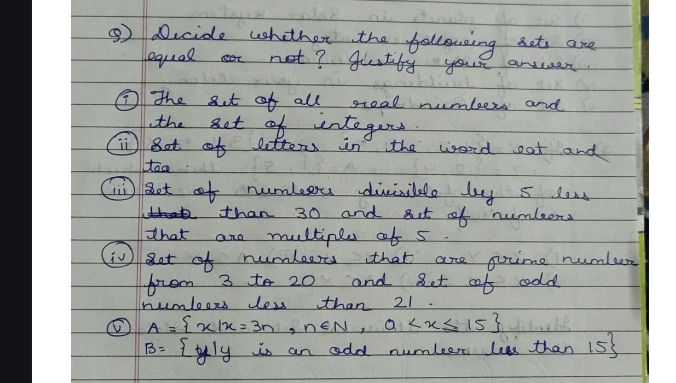 Q) Decide whether the following sets are
equal or not? Justify your answer.
(i) The set of all real numbers and
the set of integers.
(ii) Set of letters in the word eat and
tea.
(iii) Set of numbers divisible by 5 less
that than 30 and set of numbers
that are multiples of 5.
(iv) Set of numbers that are prime number
from 3 to 20 and Set of odd
numbers less than 21.
(v) A = {x|x=3n, n∈N, 0<x≤15}
B= {y|y is an odd number less than 15}